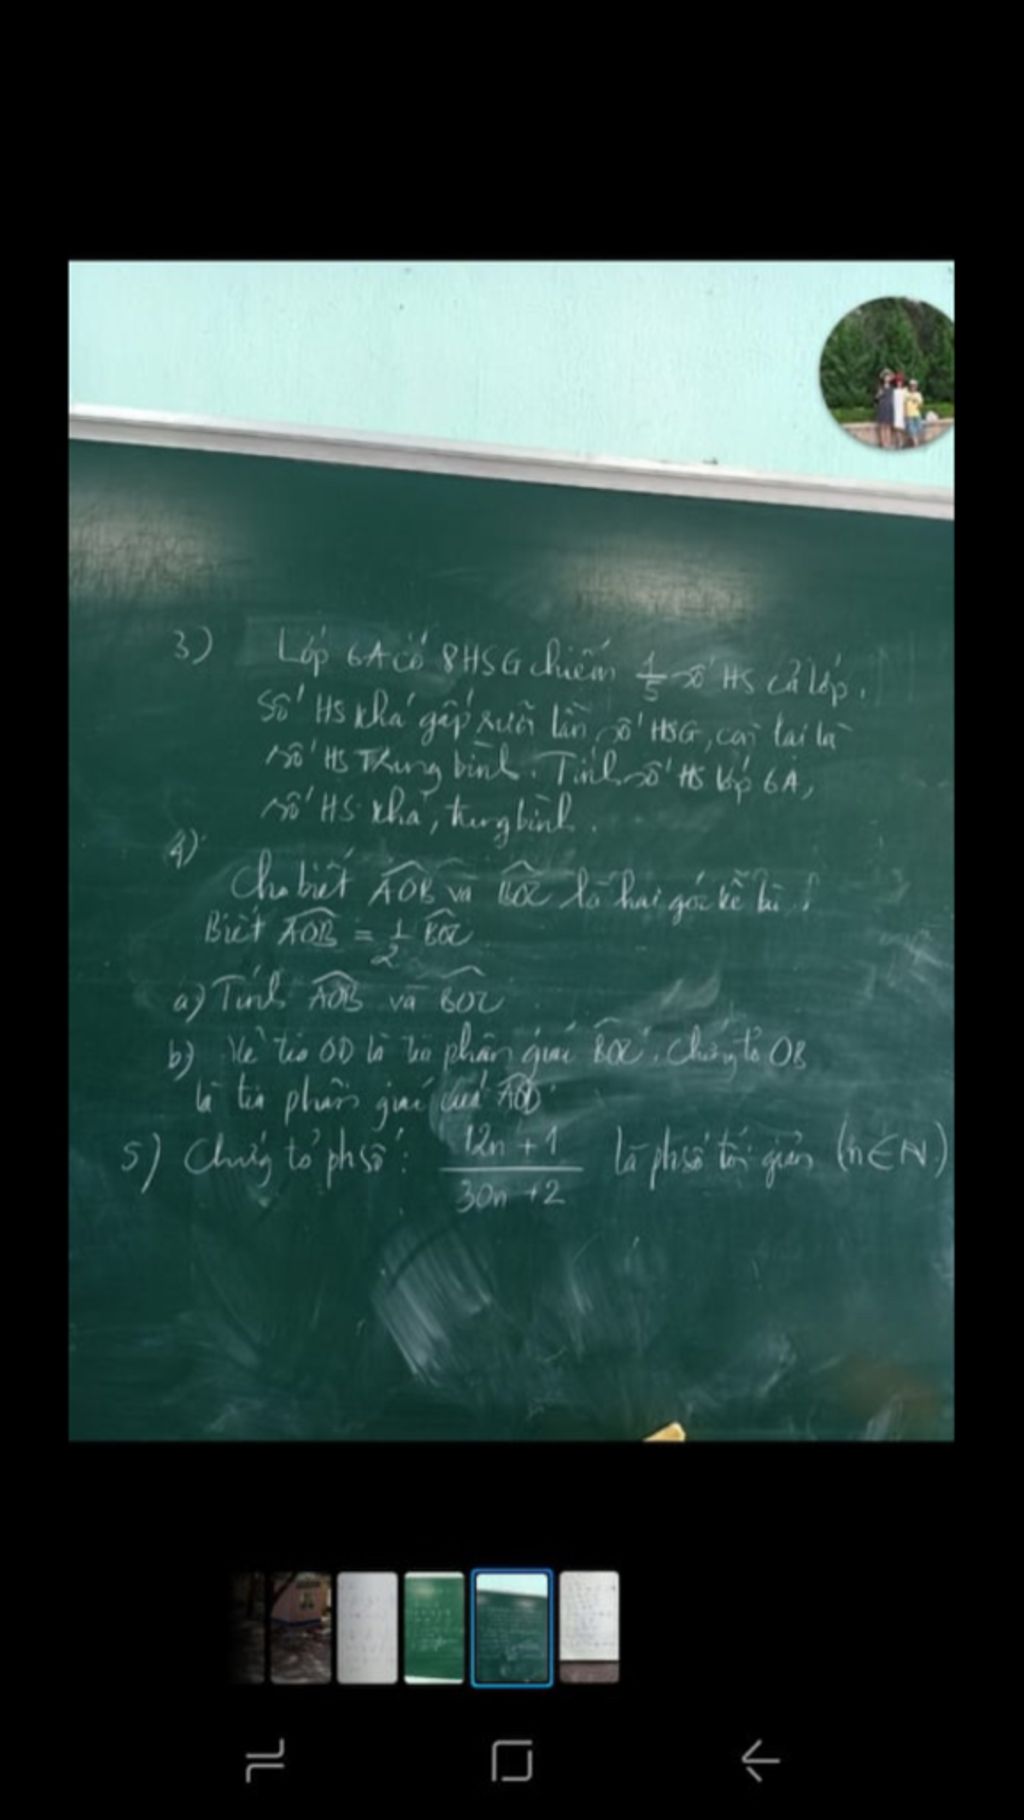 3) Lớp 6A có 8HSG chiếm 1/5 số HS cả lớp.
Số HS khá gấp rưỡi lần số HSG, còn lại là
số HS Trung bình. Tính số HS lớp 6A,
số HS khá, trung bình.
4)
Cho biết AOB và BOC là hai góc kề bù.
Biết AOB = 1/2 BOC
a) Tính AOB và BOC
b) Vẽ tia OD là tia phân giác BOC. Chứng tỏ OB
là tia phân giác của AOD
5) Chứng tỏ phsố: 12n + 1 / 30n + 2 là phsố tối giản (n ∈ N)